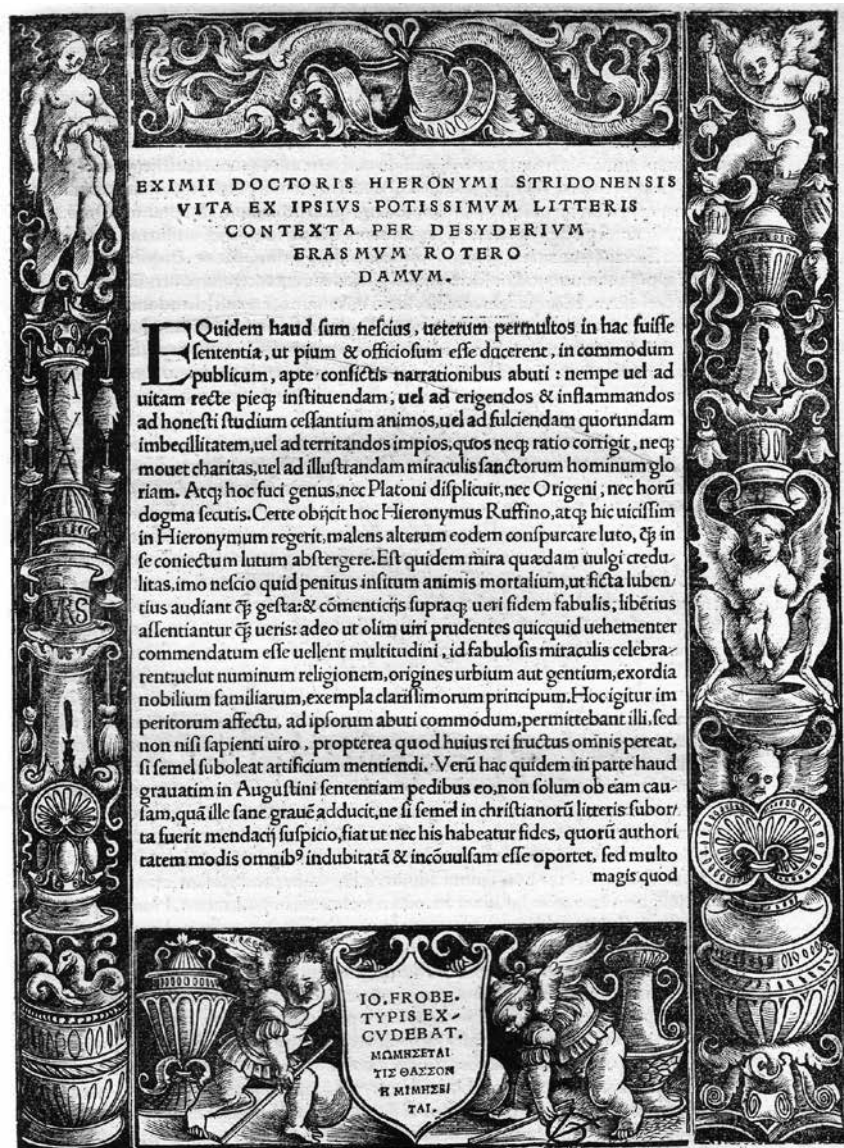 EXIMII DOCTORIS HIERONYMI STRIDONENSIS
VITA EX IPSIVS POTISSIMVM LITTERIS
CONTEXTA PER DESYDERIVM
ERASMVM ROTERO
DAMVM.
EQuidem haud ſum neſcius, ueterum permultos in hac fuiſſe
ſententia, ut pium & officioſum eſſe ducerent, in commodum
publicum, apte confictis narrationibus abuti : nempe uel ad
uitam recte pieqꝫ inſtituendam, uel ad erigendos & inflammandos
ad honeſti ſtudium ceſſantium animos,uel ad fulciendam quorundam
imbecillitatem,uel ad territandos impios,quos neqꝫ ratio corrigit, neqꝫ
mouet charitas,uel ad illuſtrandam miraculis ſanctorum hominum glo
riam. Atqꝫ hoc fuci genus,nec Platoni diſplicuit,nec Origeni, nec horū
dogma ſecutis.Certe obijcit hoc Hieronymus Ruffino,atqꝫ hic uiciſſim
in Hieronymum regerit,malens alterum eodem conſpurcare luto, q̃ꝫ in
ſe coniectum lutum abſtergere.Eſt quidem mira quædam uulgi credu-
litas,imo neſcio quid penitus inſitum animis mortalium,ut ficta luben/
tius audiant q̃ꝫ geſta:& cōmenticijs ſupraqꝫ ueri fidem fabulis, libētius
aſſentiantur q̃ꝫ ueris: adeo ut olim uiri prudentes quicquid uehementer
commendatum eſſe uellent multitudini, id fabuloſis miraculis celebra-
rent:uelut numinum religionem,origines urbium aut gentium,exordia
nobilium familiarum,exempla clariſſimorum principum.Hoc igitur im
peritorum affectu, ad ipſorum abuti commodum,permittebant illi, ſed
non niſi ſapienti uiro, propterea quod huius rei fructus omnis pereat,
ſi ſemel ſuboleat artificium mentiendi. Verū hac quidem in parte haud
grauatim in Auguſtini ſententiam pedibus eo,non ſolum ob eam cau-
ſam,quā ille ſane grauē adducit,ne ſi ſemel in chriſtianorū litteris ſubor/
ta fuerit mendacij ſuſpicio,fiat ut nec his habeatur fides, quorū authori
tatem modis omnibꝰ indubitatā & incōuulſam eſſe oportet, ſed multo
magis quod
MVA
VRS
IO. FROBE-
TYPIS EX-
CVDEBAT.
ΜΩΜΗΣΕΤΑΙ
ΤΙΣ ΘΑΣΣΟΝ
Η ΜΙΜΗΣΕΙ
ΤΑΙ.